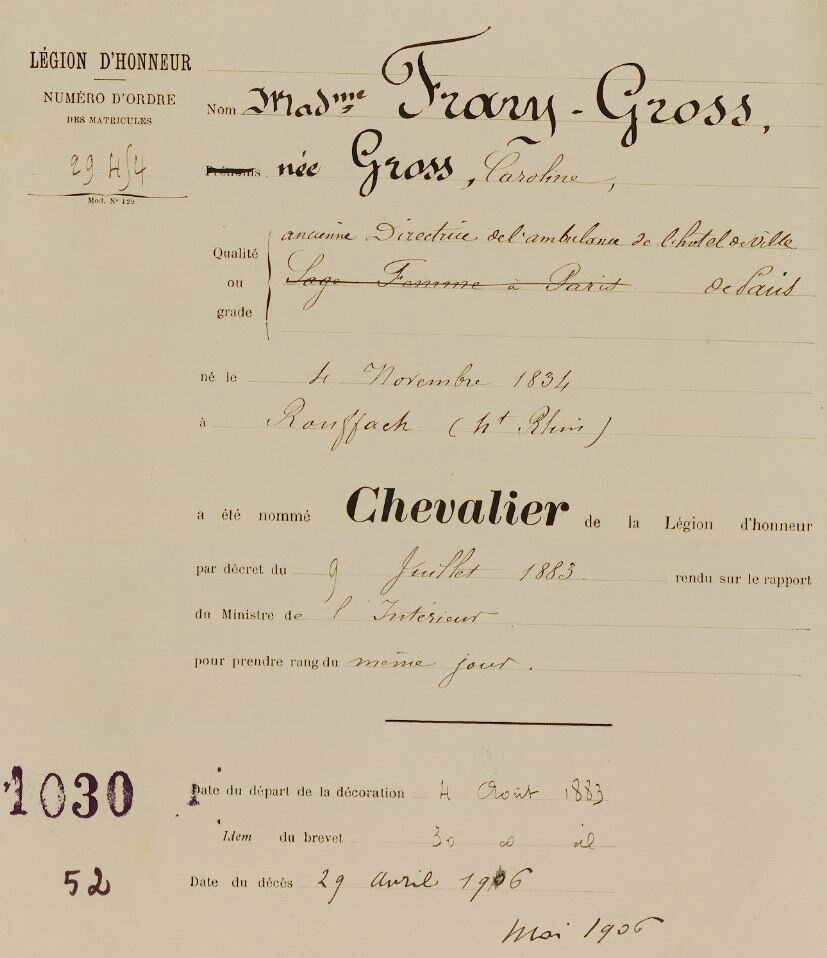 LÉGION D'HONNEUR
NUMÉRO D'ORDRE
DES MATRICULES
29 454
Mod. N° 129
Nom Madme Frary-Gross,
Prénoms née Gross, Caroline,
Qualité ou grade
ancienne Directrice de l'ambulance de l'hotel de ville
Sage Femme à Paris de Paris
né le 4 Novembre 1834
à Rouffach (ht Rhin)
a été nommé Chevalier de la Légion d'honneur
par décret du 9 Juillet 1883 rendu sur le rapport
du Ministre de l'Intérieur
pour prendre rang du même jour.
1030
Date du départ de la décoration 4 Août 1883
Idem du brevet 30
52
Date du décès 29 avril 1906
Mai 1906